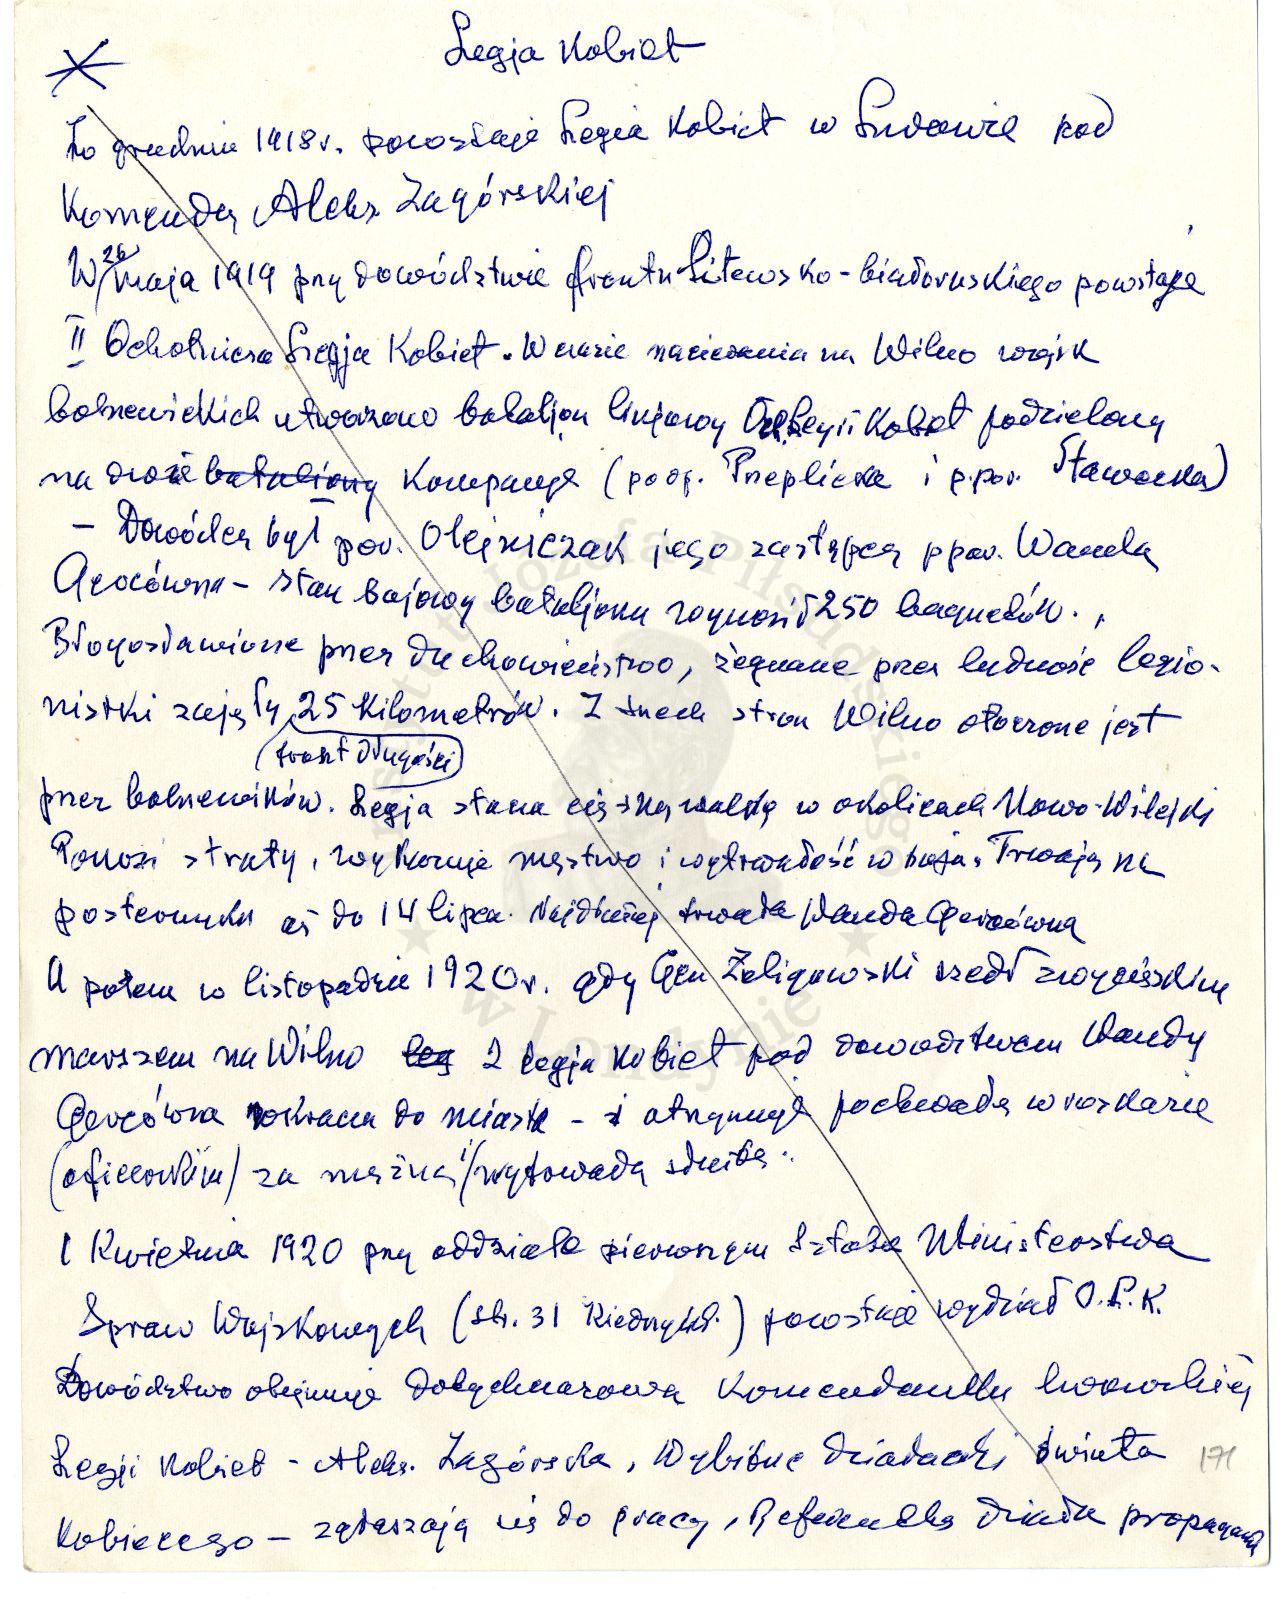 Legja Kobiet
W grudniu 1918 r. powstaje Legia Kobiet w Lwowie pod
Komendą Aleks Zagórskiej
W 26 maja 1919 przy dowództwie frontu Litewsko-białoruskiego powstaje
II Ochotnicza Legja Kobiet. W czasie nacierania na Wilno wojsk
bolszewickich utworzono bataljon linjowy Och. Legii Kobiet podzielony
na dwie bataliony Kompanje (podp. Przeplicka i p.por. Stawecka)
– Dowódcą był por. Olejniczak jego zastępcą ppor. Wanda
Gercówna – stan bojowy bataljonu wynosił 250 bagnetów.
Błogosławione przez duchowieństwo, żegnane przez ludność legio-
nistki zajęły 25 kilometrów. Z trzech stron Wilno otoczone jest
(front długości)
przez bolszewików. Legja stacza ciężką walkę w okolicach Nowo-Wilejki
Ponosi straty, wykazuje męstwo i wytrwałość w boju. Trwają na
posterunku aż do 14 lipca. Najdłużej trwała Wanda Gercówna
A potem w listopadzie 1920 r. gdy Gen Żeligowski szedł zwycięskim
marszem na Wilno leg 2 Legja Kobiet pod dowództwem Wandy
Gercówna wkracza do miasta – i otrzymuje pochwałę w rozkazie
(oficerskim) za mężną i wytrwałą służbę.
1 Kwietnia 1920 przy oddziale pierwszym Sztabu Ministerstwa
Spraw Wojskowych (str. 31 Kiedrzyńs.) powstaje wydział O.L.K.
Dowództwo obejmuje dotychczasowa Komendantka lwowskiej
Legji Kobiet – Aleks. Zagórska, Wybitne działaczki świata
Kobiecego – zgłaszają się do pracy, Referentką działu propagand
171
Instytut Józefa Piłsudskiego
w Londynie